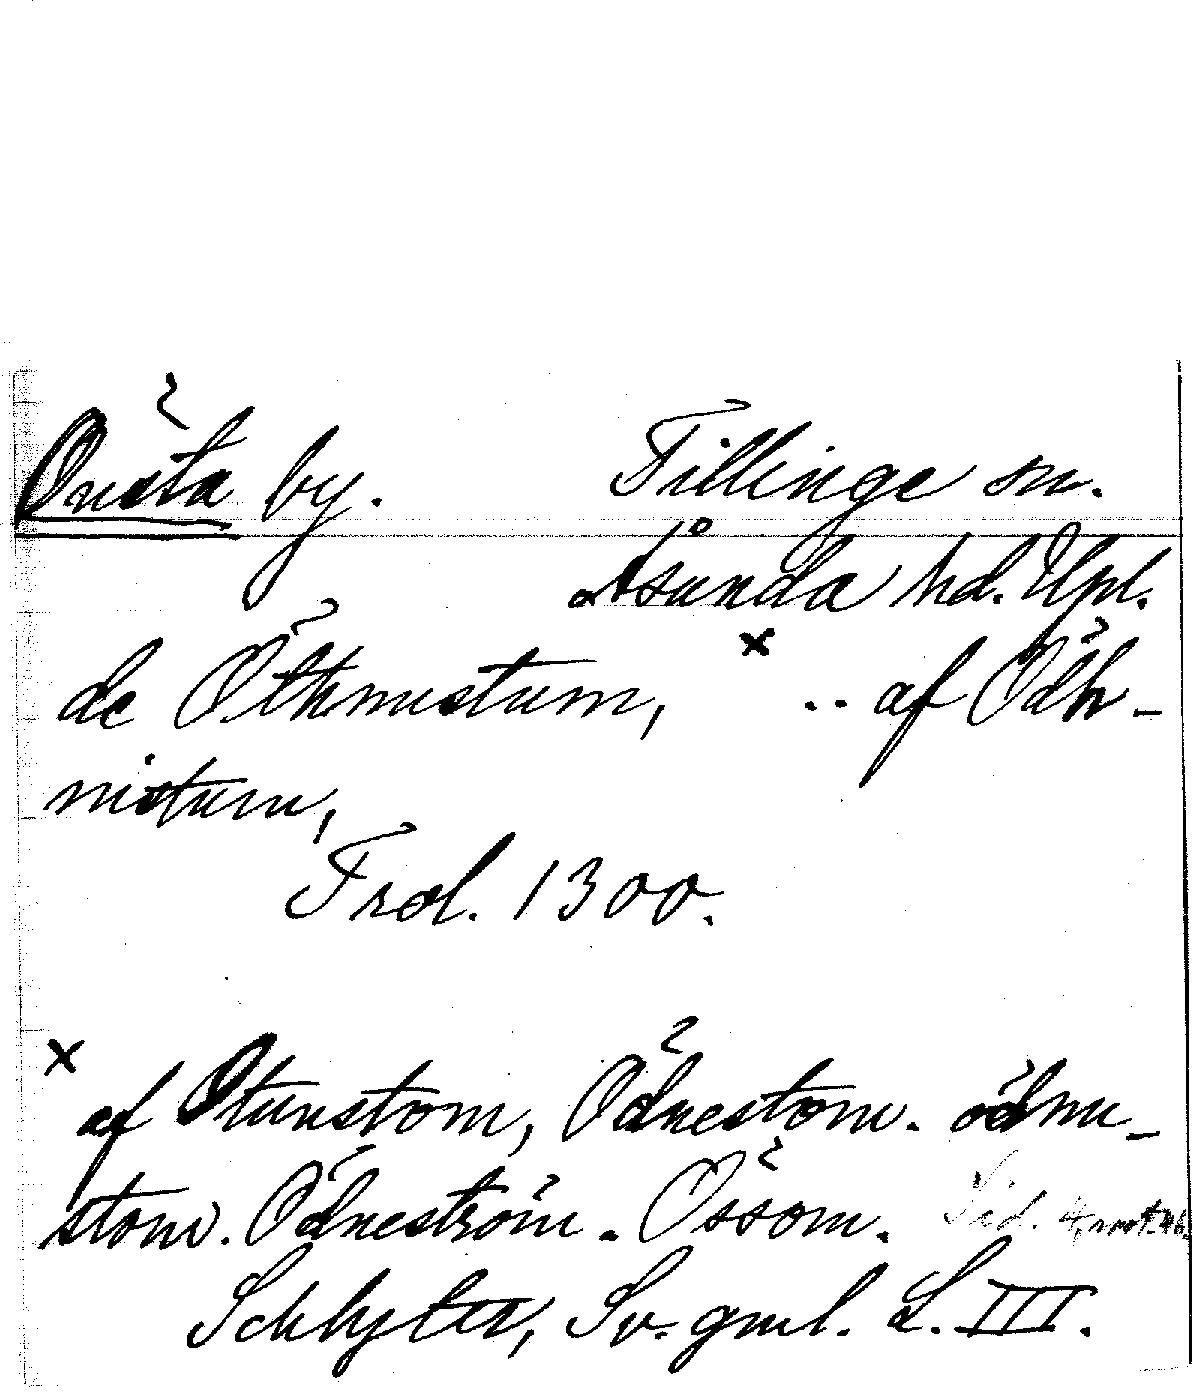 Önsta by. Tillinge sn.
Åsunda hd. Upl.
de Öthnustum, × .. af Ödh-
nistum,
Frol. 1300.
× af Otunstom, Ödnestom. ödnu-
stom. Ödneström. Össom. Sid. 4, not. 46.
Schlyter, Sv. gml. L. III.